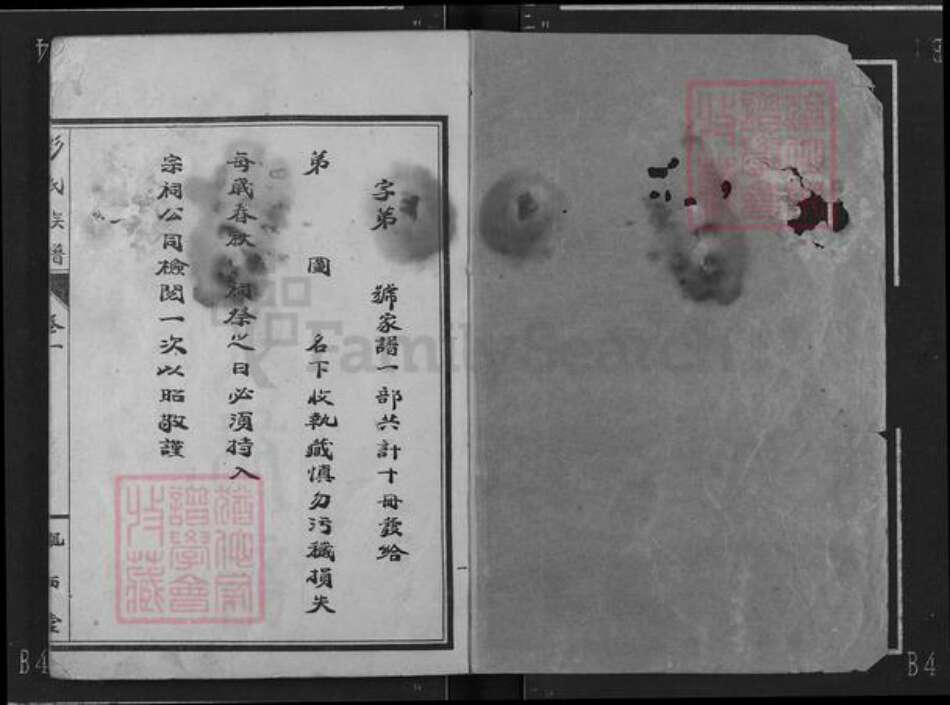 字第　號家譜一部共計十冊發給
第　圖　名下收執藏慎勿污穢損失
每歲春秋　祠祭之日必須持入
宗祠公同檢閱一次以昭敬謹
彭氏族譜
卷一
猶他家譜學會收藏
猶他家譜學會收藏
FamilySearch
B4
B4